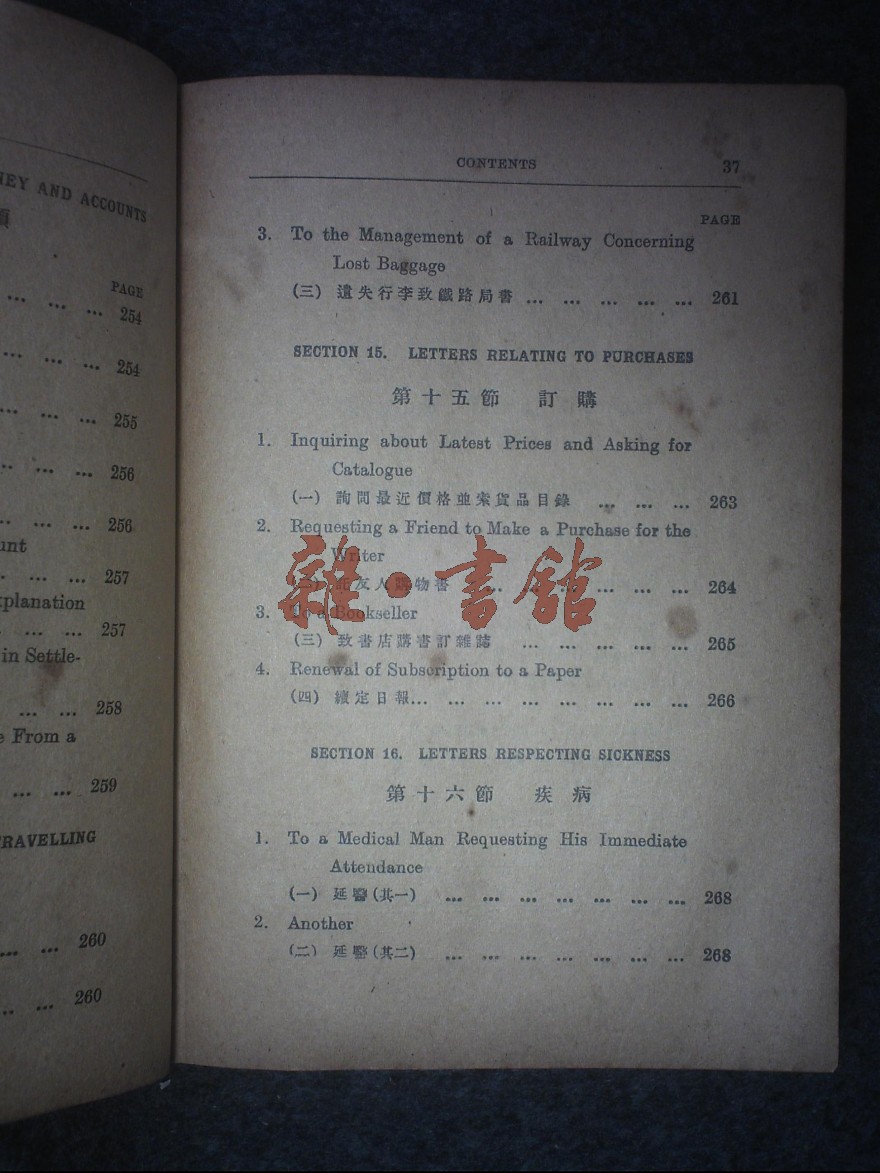 NEY AND ACCOUNTS
PAGE
... ... 254
... ... ... 254
... ... ... 255
... ... ... 256
... ... ... 256
unt
... ... ... 257
xplanation
... ... ... 257
in Settle-
... ... 258
e From a
... ... 259
RAVELLING
... ... 260
... ... 260
CONTENTS 37
PAGE
3. To the Management of a Railway Concerning
Lost Baggage
(三) 遺失行李致鐵路局書 ... ... ... ... ... 261
SECTION 15. LETTERS RELATING TO PURCHASES
第十五節 訂購
1. Inquiring about Latest Prices and Asking for
Catalogue
(一) 詢問最近價格並索貨品目錄 ... ... ... 263
2. Requesting a Friend to Make a Purchase for the
Writer
(二) 託友人購物書 ... ... ... ... ... ... 264
3. To a Bookseller
(三) 致書店購書訂雜誌 ... ... ... ... ... 265
4. Renewal of Subscription to a Paper
(四) 續定日報... ... ... ... ... ... ... ... 266
SECTION 16. LETTERS RESPECTING SICKNESS
第十六節 疾病
1. To a Medical Man Requesting His Immediate
Attendance
(一) 延醫(其一) ... ... ... ... ... ... ... 268
2. Another
(二) 延醫(其二) ... ... ... ... ... ... ... 268
雜·書館